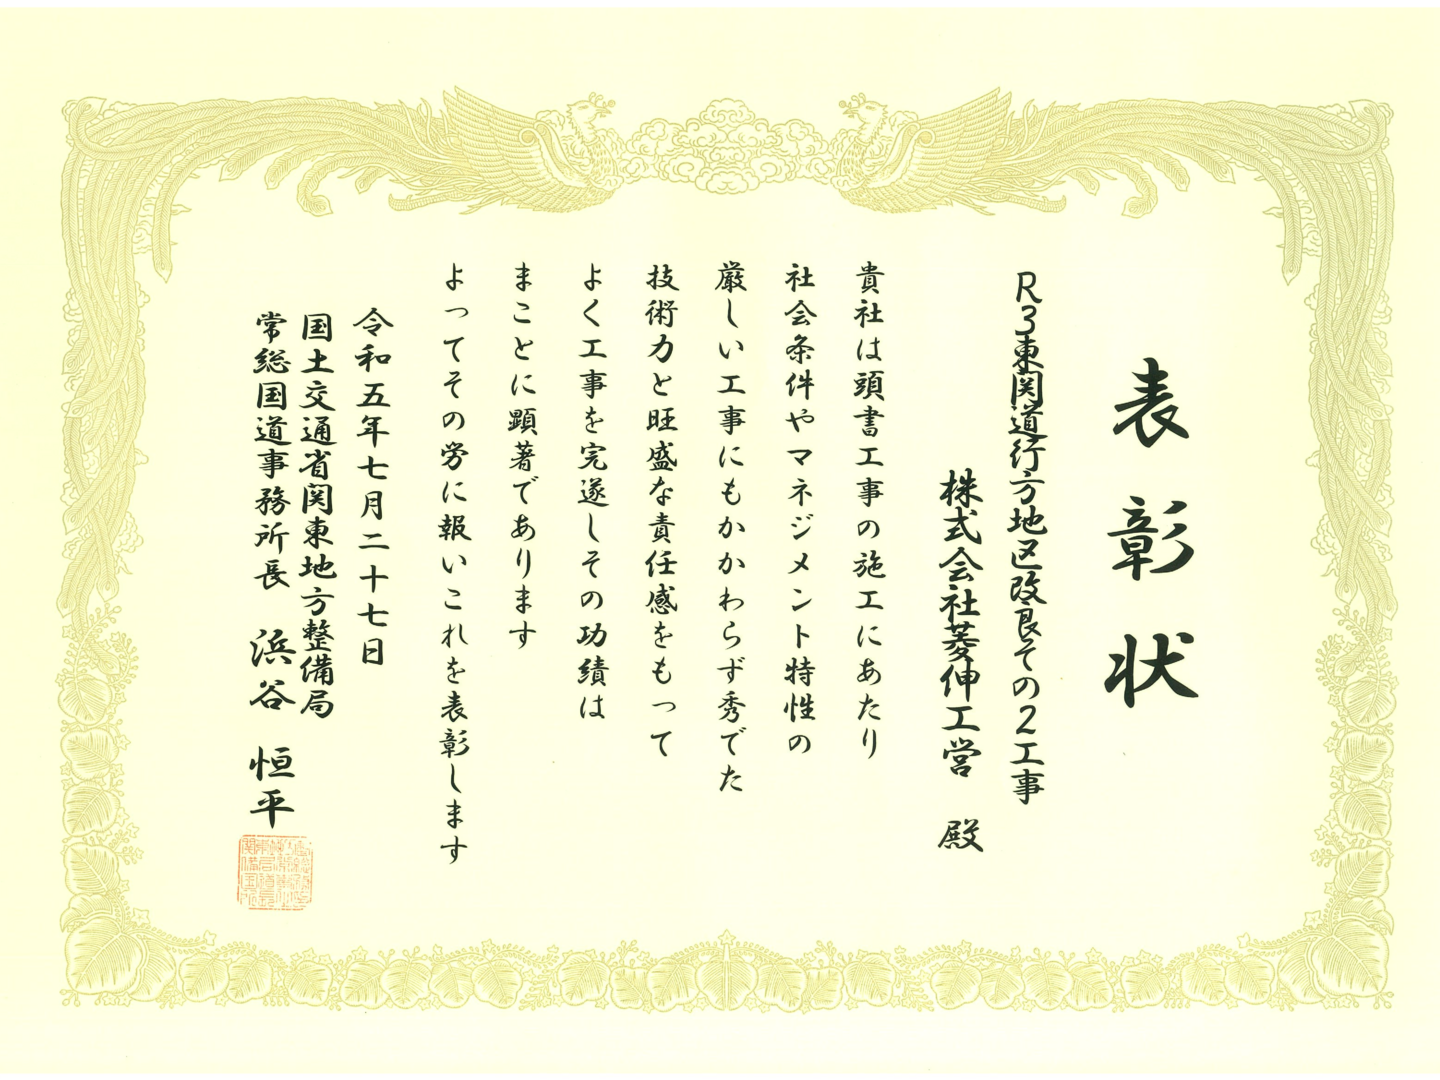 表彰状
R3東関道行方地区改良その2工事
株式会社菱伸工営 殿
貴社は頭書工事の施工にあたり
社会条件やマネジメント特性の
厳しい工事にもかかわらず秀でた
技術力と旺盛な責任感をもって
よく工事を完遂しその功績は
まことに顕著であります
よってその労に報いこれを表彰します
令和五年七月二十七日
国土交通省関東地方整備局
常総国道事務所長 浜谷 恒平